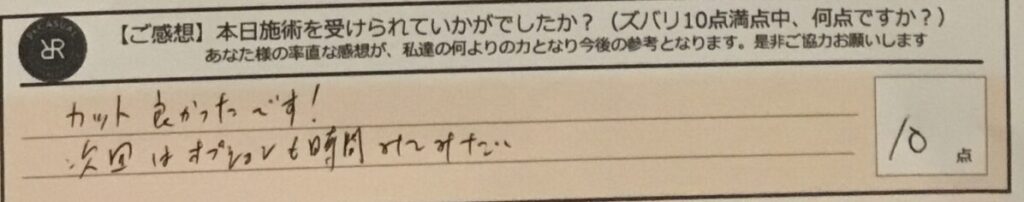 【ご感想】本日施術を受けられていかがでしたか？（ズバリ10点満点中、何点ですか？）
あなた様の率直な感想が、私達の何よりの力となり今後の参考となります。是非ご協力お願いします
カット良かったです！
次回はオプションも時間みてみたい
10点